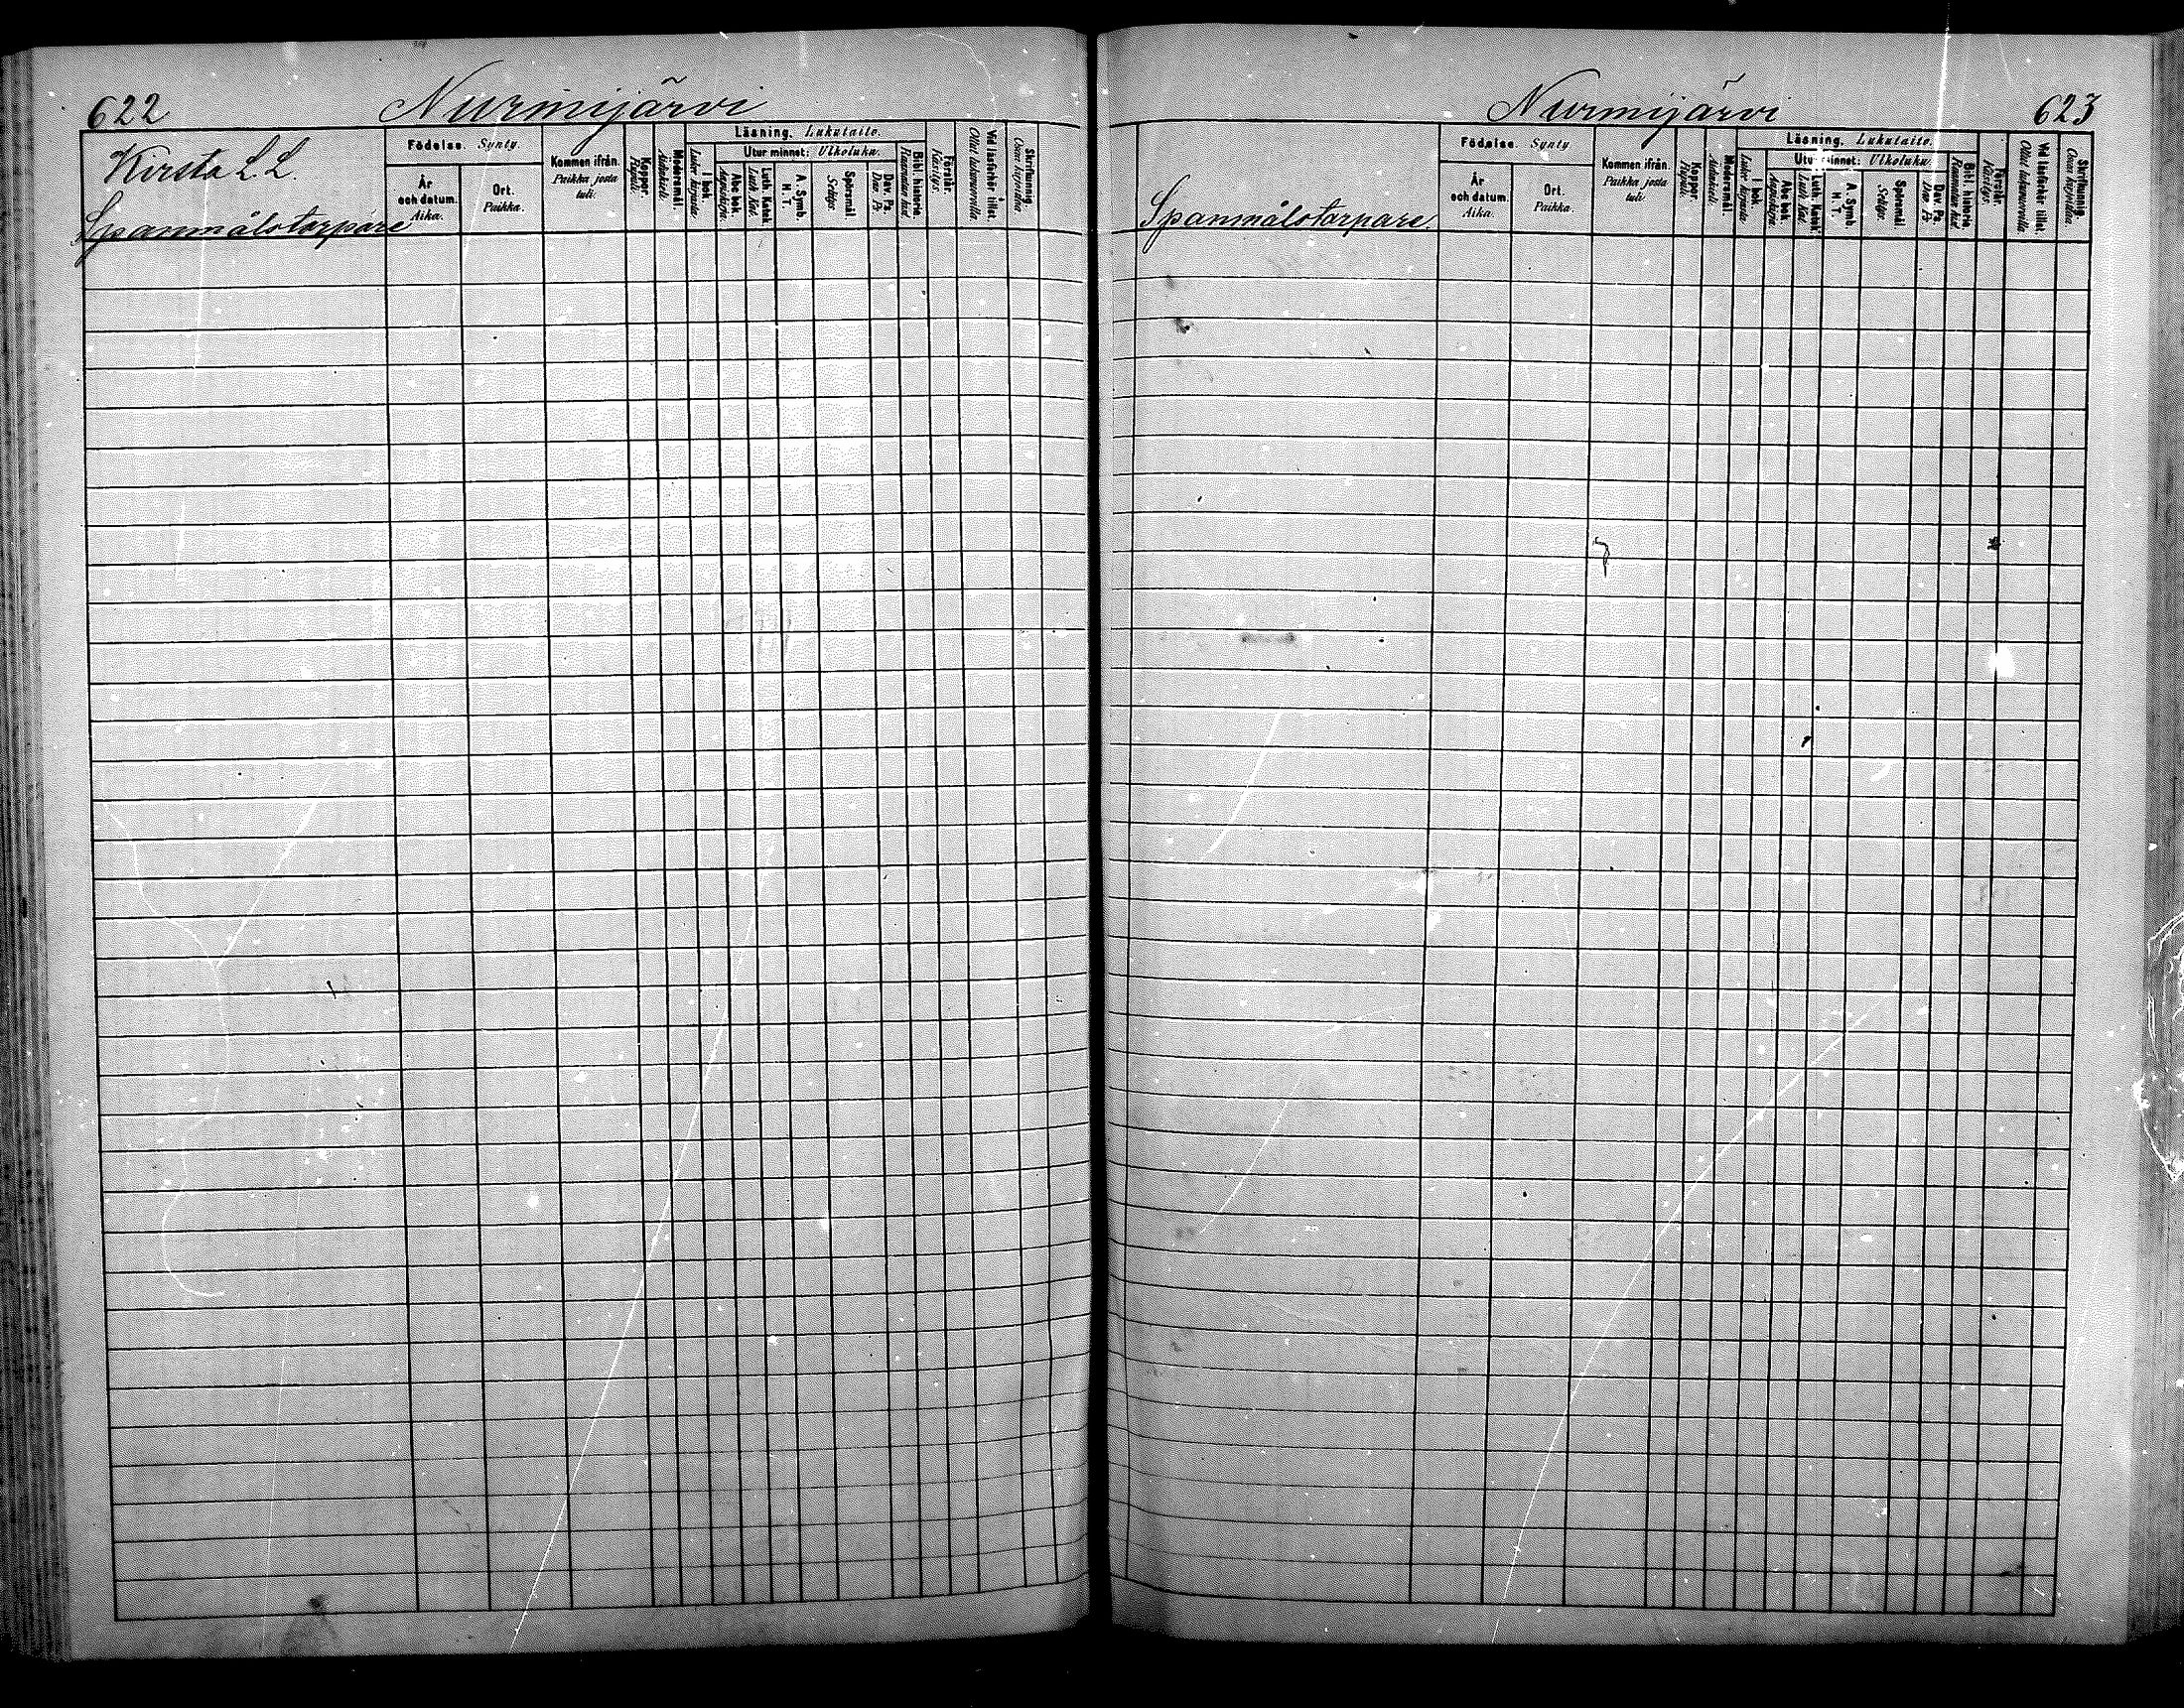 622
Nurmijärvi
Kirsta L. L.
Spanmålstorpare
Födelse. Synty.
År och datum. Aika.
Ort. Paikka.
Kommen ifrån. Paikka josta tuli.
Koppor. Rupuli.
Modersmål. Äidinkieli.
Läsning. Lukutaito.
I bok. Lukee kirjasta.
Utur minnet: Ulkoluku.
Abc bok. Aapiskirja.
Luth. Katek. Luth. Kat.
A. Symb. H. T.
Spörsmål Selitys.
Dav. Ps. Dav. Ps.
Bibl. historia. Raamatun hist.
Förstår. Käsitys.
Vid läsförhör tillst. Ollut lukukunruilla.
Skrifkunnig. Osaa kirjoittaa.
Nurmijärvi
623
Spanmålstorpare.
Födelse. Synty
År och datum. Aika.
Ort. Paikka.
Kommen ifrån. Paikka josta tuli.
Koppor. Rupuli.
Modersmål. Äidinkieli.
Läsning. Lukutaito.
I bok. Lukee kirjasta.
Utur minnet: Ulkoluku.
Abc bok. Aapiskirja.
Luth. Katek. Luth. Kat.
A. Symb. H. T.
Spörsmål Selitys.
Dav. Ps. Dav. Ps.
Bibl. historia. Raamatun hist.
Förstår. Käsitys.
Skrifkunnig. Osaa kirjoittaa.